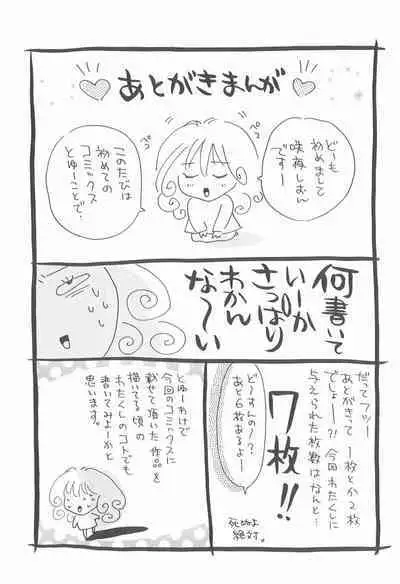 あとがきまんが
どーも
初めまして
咲梅しおん
ですー
ペこ
ペこ
このたびは
初めての
コミックス
とゆーことで。
何書いて
いーか
さっぱり
わかん
な〜い
だってフツー
あとがきって1枚とか2枚
でしょー?!今回わたくしに
与えられた枚数はなんと…
7枚!!
どーすんの!?
あと6枚あるよー
死ぬよ
絶対。
とゆーわけで
今回のコミックスに
載せて頂いた作品を
描いてる頃の
わたくしのコトでも
書いてみよーかと
思います。